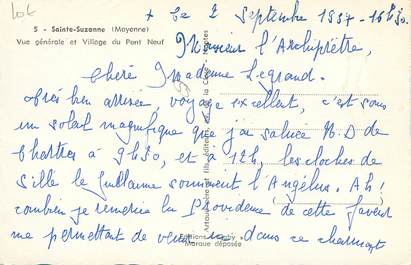 lot
+ Ce 2 Septembre 1957 - 15h30.
5 - Sainte-Suzanne (Mayenne)
Vue générale et Village du Pont Neuf
Monsieur l'Archiprêtre,
Chère Madame Legrand.
Très bien arrivée, voyage excellent, c'est sous
un soleil magnifique que j'ai saluée N.D de
Chartres à 9h30, et à 12h, les cloches de
Sillé le Guillaume sonnaient l'Angélus. Ah!
combien je remercie la Providence de cette faveur
me permettant de venir dans ce charmant
Marque déposée